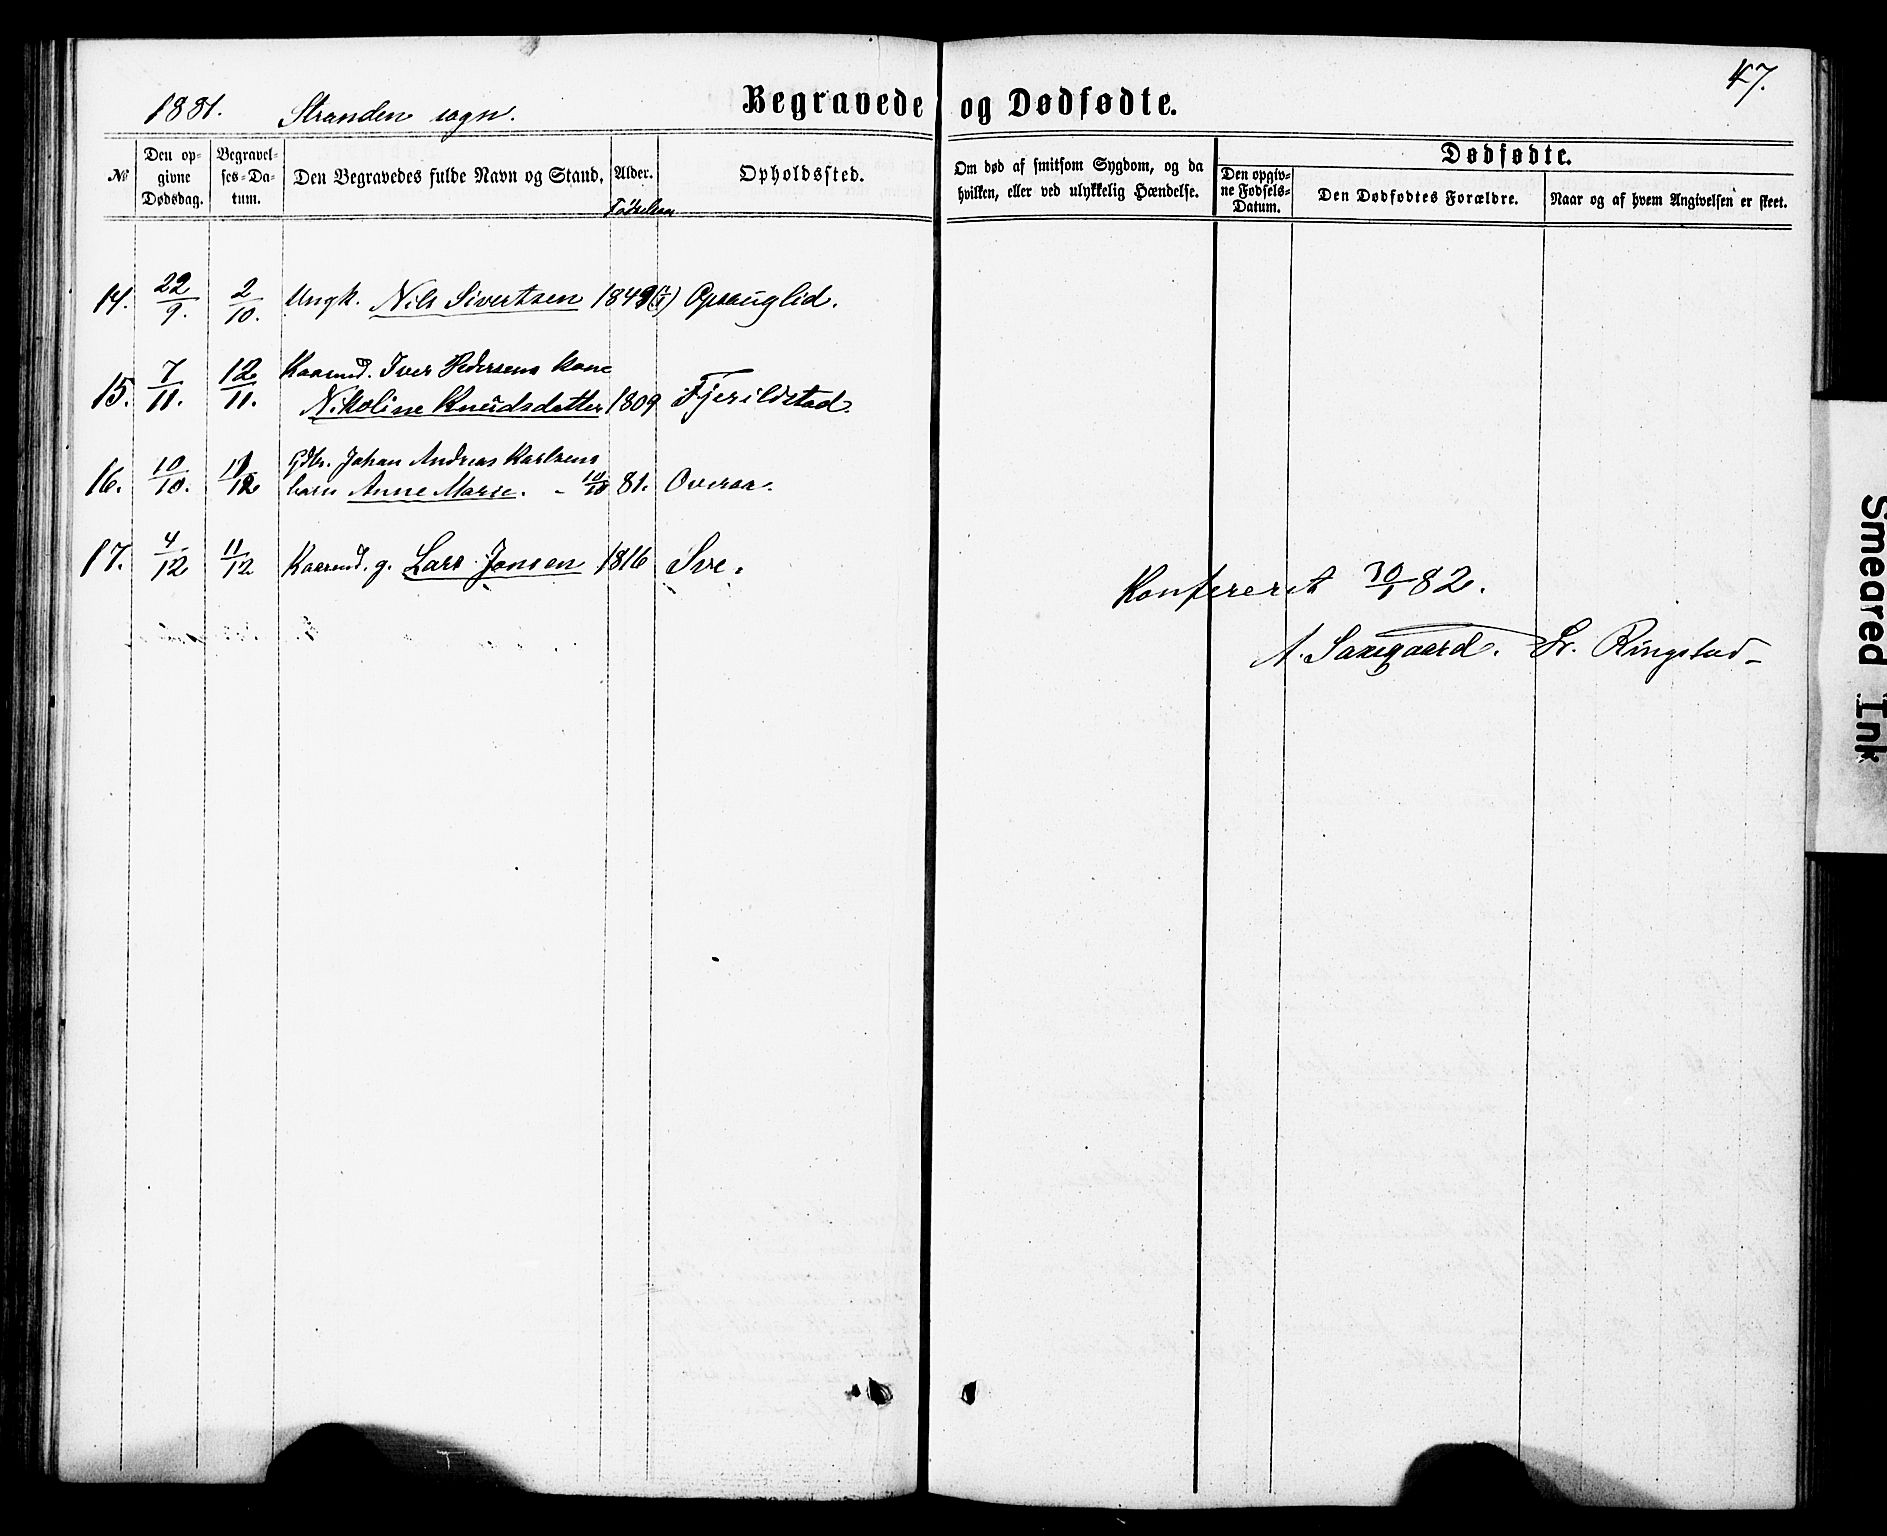 1881. Stranden sogn. Begravede og Dødfødte. 47.
No
Den opgivne Dødsdag.
Begravelses-Datum.
Den Begravedes fulde Navn og Stand.
Alder.
Opholdssted.
Om død af smitsom Sygdom, og da hvilken, eller ved ulykkelig Hændelse.
Dødfødte.
Den opgivne Fødsels-Datum.
Den Dødfødtes Forældre.
Naar og af hvem Angivelsen er skeet.
14. 22/9. 2/10. Ungk. Nils Sivertsen 1849 Opsauglid.
Kaarmd. Iver Pedersens kone
15. 7/11. 12/11. Nikoline Knudsdatter 1809 Fjerildstad.
Gdbr. Johan Andreas Karlsens
16. 10/10. 11/12 barn Anne Marie. - 10/10 81. Overaa.
17. 4/12 11/12 Kaarmd. g. Lars Jonsen 1816 Sve.
Konfereret 30/1 82.
A. Saxegaard. Sr. Ringstad
Smeared Ink